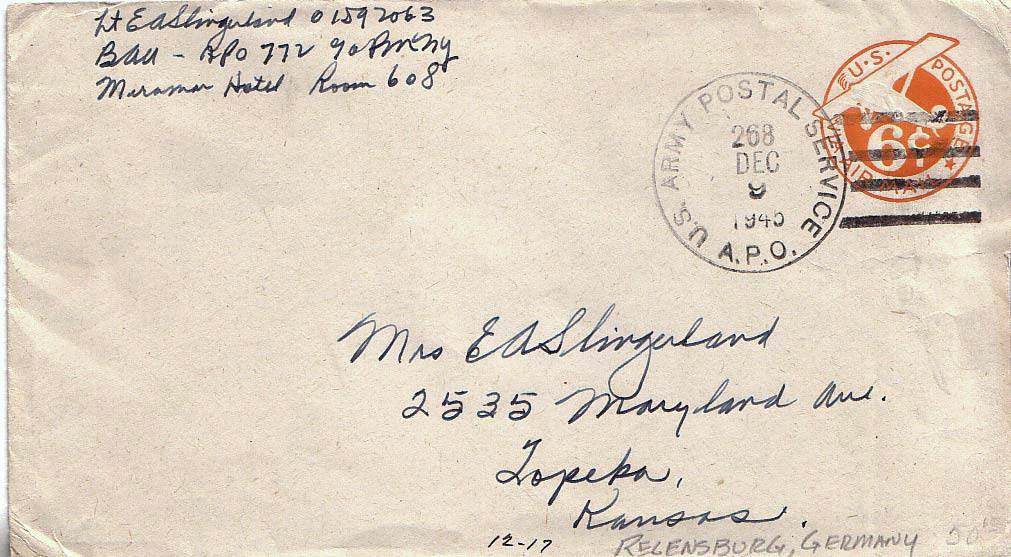 Lt EA Slingerland O1592063
BAU - APO 772 % PM NY
Miramar Hotel Room 608
U.S. POSTAGE
6¢
VIA AIR MAIL
U.S. ARMY POSTAL SERVICE
268
DEC
9
1945
A.P.O.
Mrs EA Slingerland
2535 Maryland Ave.
Topeka,
Kansas.
12-17
RELENSBURG, GERMANY